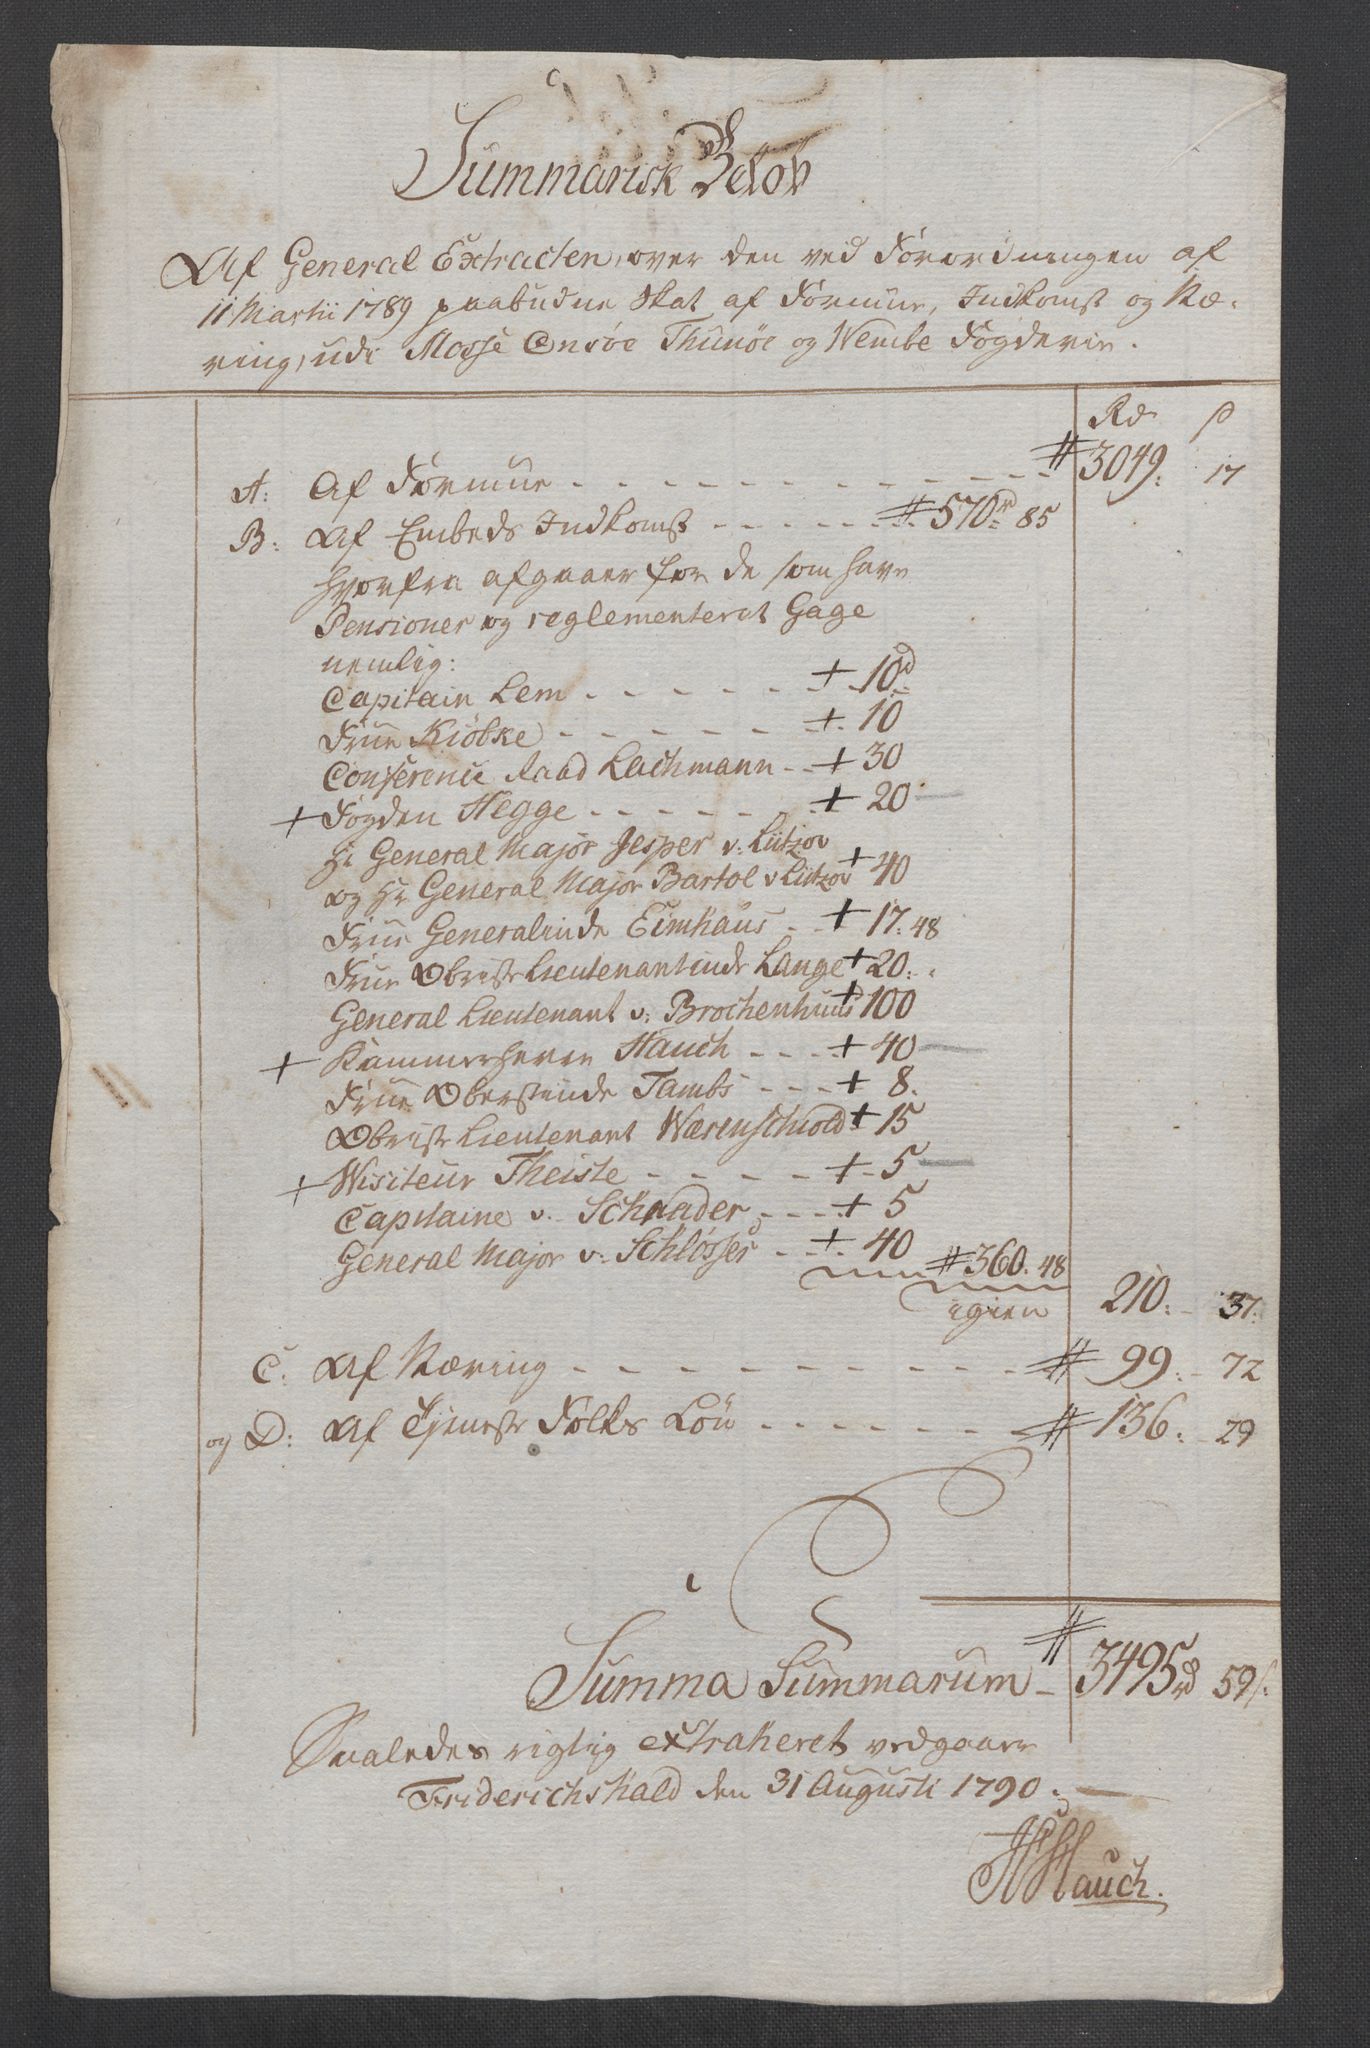 Summarisk Beløb
Af General Extracten, over den ved Forordningen af
11 Martii 1789 paabudne Skat af Formue, Indkomst og Næ-
ring, udi Mosse Onsøe Thunøe og Wembe Fogderie.
Rd ß
A: Af Formue - - - # 3049: 17
B: Af Embeds Indkomst - - - # 570rd: 85
hvorfra afgaaer for de som have
Pensioner og reglementeret Gage
nemlig:
Capitain Lem - - - + 10rd
Frue Kiøbke - - - + 10
Conference Raad Lachmann - - + 30
+ Fogden Hegge - - - + 20
Hr General Major Jesper v: Lützov
og Hr General Major Bartol v Lützov + 40
Frue Generalinde Eimhaus - - + 17: 48
Frue Obrist Lieutenantinde Lange + 20: -
General Lieutenant v: Brochenhuus + 100
+ Kammerherre Hauch - - - + 40
Frue Oberstinde Tambs - - - + 8.
Obrist Lieutenant Wærenschiold + 15
+ Wisiteur Theiste - - - + 5
Capitaine v. Schrader - - - + 5
General Major v: Schløsser - - + 40 # 360. 48
igien 210: 37:
C: Af Næring - - - # 99: 72
og D: Af Tjeneste Folks Løn - - - # 136: 29
Summa Summarum - # 3495rd 59ß.
Saaledes rigtig extraheret vedgaaer
Friderichshald den 31 Augusti 1790.
Hauch.